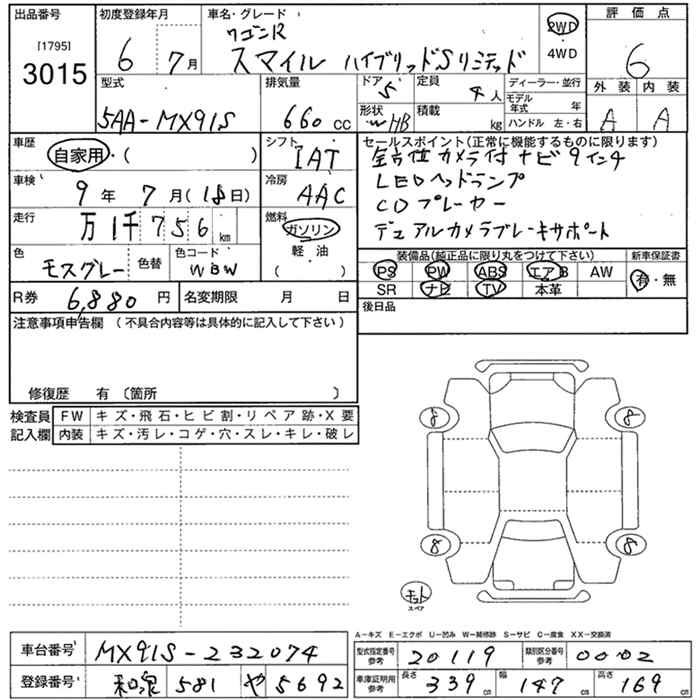 出品番号
[1795]
3015
初度登録年月
6 7月
車名・グレード
ワゴンR
スマイル ハイブリッドSリミテッド
2WD
4WD
評価点
6
外装 内装
A A
型式
5AA-MX91S
排気量
660 cc
ドア 5
形状 HB
定員 4人
積載 kg
ディーラー・並行
モデル年式 年
ハンドル 左・右
車歴
自家用・( )
シフト
IAT
車検
9年 7月(18日)
冷房
AAC
走行
万1千756km
燃料
ガソリン
軽・油
( )
色
モスグレー
色替
色コード
WBW
R券 6,880円
名変期限 月 日
セールスポイント(正常に機能するものに限ります)
全方位カメラ付ナビ9インチ
LEDヘッドランプ
CDプレーヤー
デュアルカメラブレーキサポート
装備品(純正品に限り丸をつけて下さい)
新車保証書
PS PW ABS エアB AW
SR ナビ TV 本革
有・無
後日品
注意事項申告欄 (不具合内容等は具体的に記入して下さい)
修復歴 有 〔箇所 〕
検査員記入欄
FW キズ・飛石・ヒビ割・リペア跡・X要
内装 キズ・汚レ・コゲ・穴・スレ・キレ・破レ
8 8
8 8
スペア
A-キズ E-エクボ U-凹み W-補修跡 S-サビ C-腐食 XX-交換済
車台番号 MX91S-232074
登録番号 和泉 581 や 5692
型式指定番号 参考 20119
類別区分番号 参考 0002
車庫証明用 参考 長さ 339cm 幅 147cm 高さ 169cm